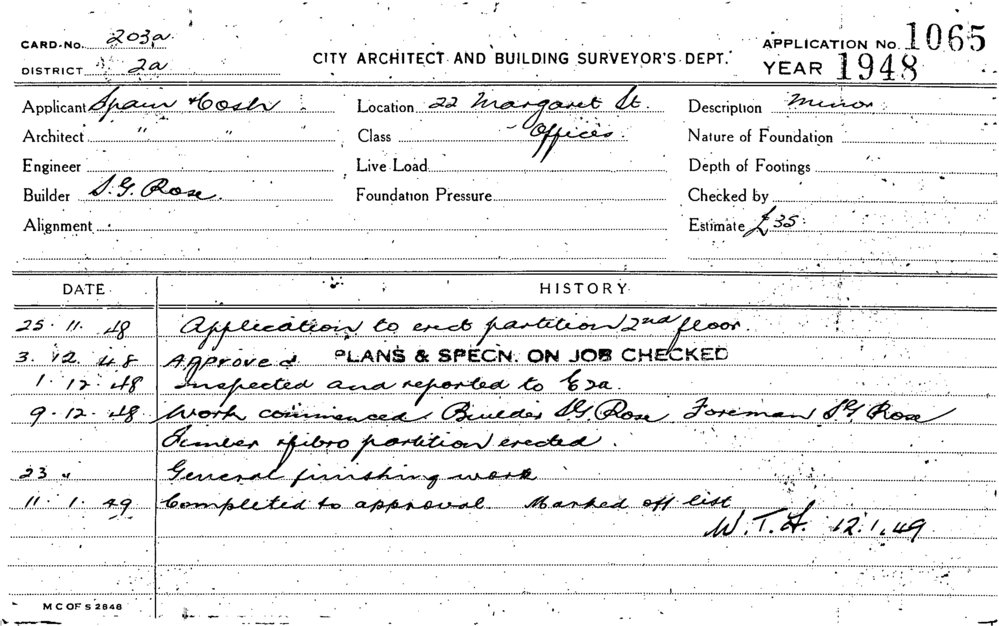 CARD-No. 203a
DISTRICT 2a
CITY ARCHITECT AND BUILDING SURVEYOR'S DEPT.
APPLICATION No. 1065
YEAR 1948
Applicant Spain & Cosh Location 22 Margaret St. Description Minor
Architect " " Class Offices Nature of Foundation
Engineer Live Load Depth of Footings
Builder S.G. Rose Foundation Pressure Checked by
Alignment Estimate £35
DATE HISTORY
25 . 11 . 48 Application to erect partition 2nd floor.
3. 12. 48 Approved PLANS & SPECN. ON JOB CHECKED
1 . 12 . 48 Inspected and reported to E2a.
9 . 12 . 48 Work commenced Builder S.G. Rose Foreman S.G. Rose
Timber & fibro partition erected.
23 " General finishing work
11 . 1 . 49 Completed to approval. Marked off list
12.1.49
M C OF S 2848